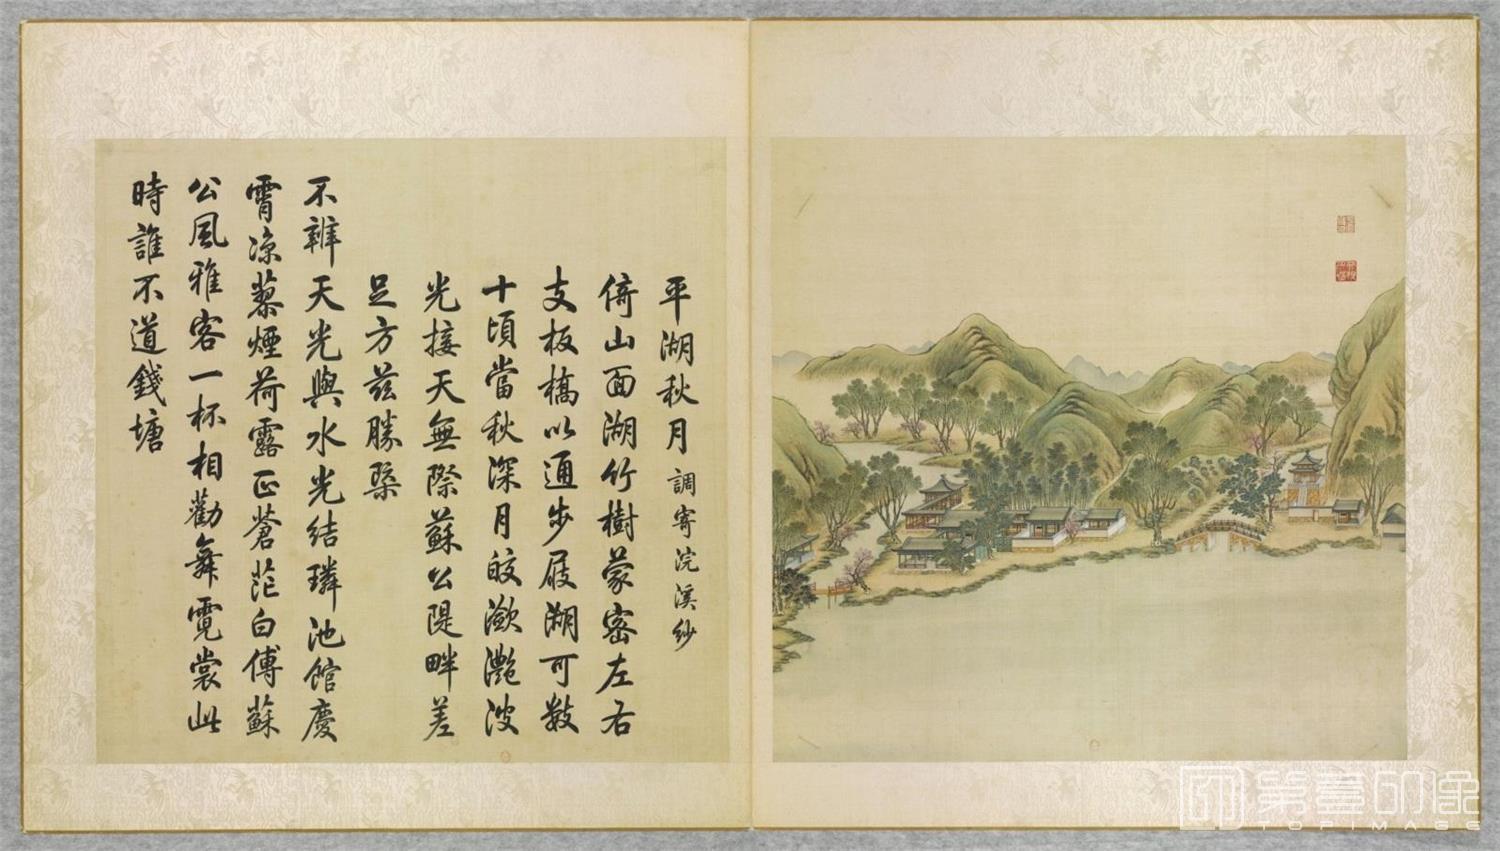 平湖秋月調寄浣溪紗
倚山面湖竹樹蒙密左右
支板橋以通步屐湖可數
十頃當秋深月皎瀲灔波
光接天無際蘇公隄畔差
足方茲勝槩
不辨天光與水光結璘池館慶
霄涼藜煙荷露正蒼茫白傅蘇
公風雅客一杯相勸舞霓裳此
時誰不道錢塘
第壹印象
TOPIMAGE